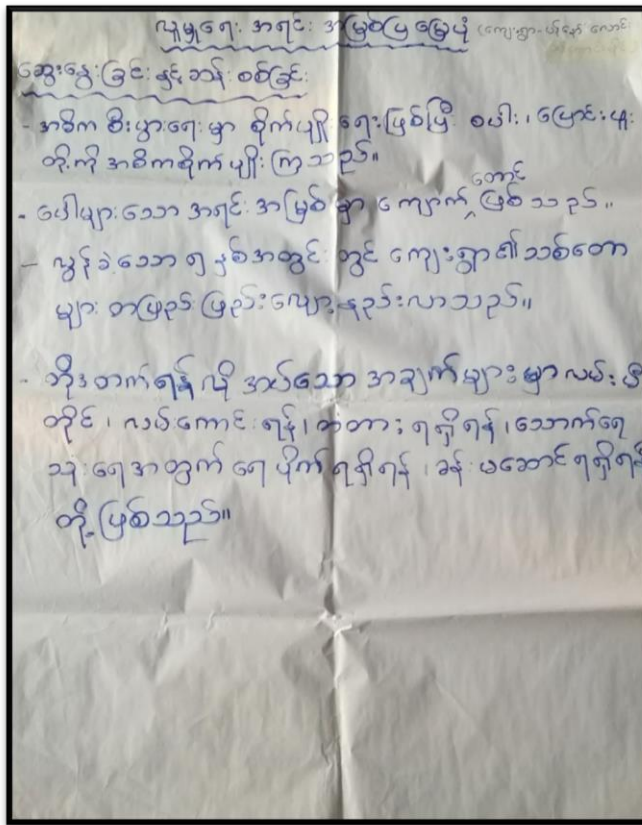 လူမှုရေး အရင်း အမြစ်ပြ မြေပုံ (ကျေးရွာ-
ဆွေးနွေးခြင်း နှင့် ဆန်းစစ်ခြင်း
- အဓိက စီးပွားရေးမှာ စိုက်ပျိုးရေးဖြစ်ပြီး စပါး၊ ပြောင်းဖူး
တို့ကို အဓိကစိုက်ပျိုးကြသည်။
- ပေါများသော အရင်းအမြစ်မှာ ကျောက်တောင်ဖြစ်သည်။
- လွန်ခဲ့သော ၅ နှစ်အတွင်းတွင် ကျေးရွာ၏သစ်တော
များ တဖြည်းဖြည်းလျော့နည်းလာသည်။
- ဘို့ဒတက်ရန် လို အပ်သော အချက်များမှာ လမ်း
တိုင်၊ လယ်ကောင်းရန်၊ တံတားရရှိရန်၊ သောက်ရေ
သုံးရေအတွက် ရေပိုက်ရရှိရန်၊ ခန်းမဆောင်ရရှိရန်
တို့ဖြစ်သည်။